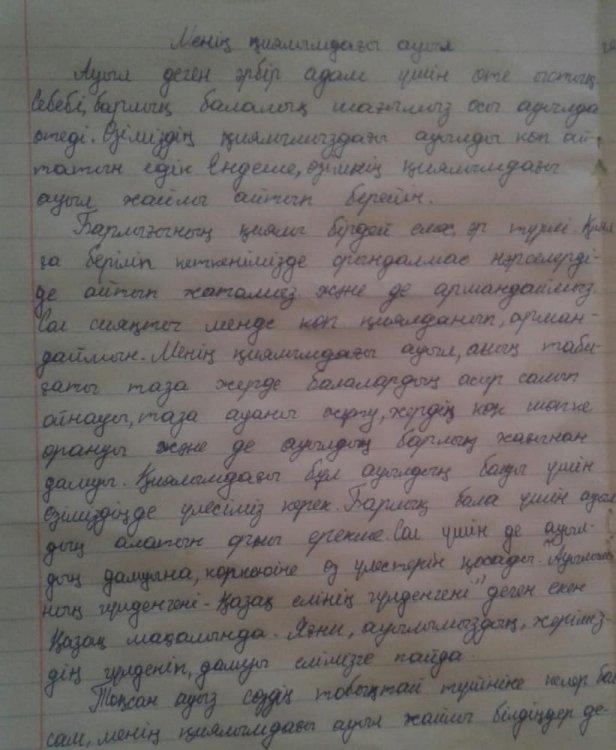 Менің қиялымдағы ауыл
Ауыл деген әрбір адам үшін өте ыстық
Себебі, барлық балалық шағымыз осы ауылда
өтеді. Өзіміздің қиялымыздағы ауылды көп ай-
татын едік. Ендеше, өзімнің қиялымдағы
ауыл жайлы айтып берейін.
Барлығының қиялы бірдей емес, әр түрлі. Қиял
ға беріліп кеткенімізде орындалмас нәрселерді-
де айтып жатамыз және де армандаймыз.
Сол сияқты менде көп қиялданып, арман-
даймын. Менің қиялымдағы ауыл, оның таби-
ғаты таза жерде балалардың асыр салып
ойнауы, таза ауаны жұту, жердің көк шөпке
орануы және де ауылдың барлық жағынан
дамуы. Қиялымдағы бұл ауылдың болуы үшін
өзіміздіңде үлесіміз керек. Барлық бала үшін ауыл
дың алатын орны ерекше. Сол үшін де ауыл-
дың дамуына, көркеюіне өз үлестерін қосады. "Ауылы
ның гүлденгені - Қазақ елінің гүлденгені" деген екен
Қазақ мақалында. Яғни, ауылымыздың, жеріміз-
дің гүлденіп, дамуы елімізге пайда.
Тоқсан ауыз сөздің тобықтай түйініне келер бол
сам, менің қиялымдағы ауыл жайлы білдіңдер де-